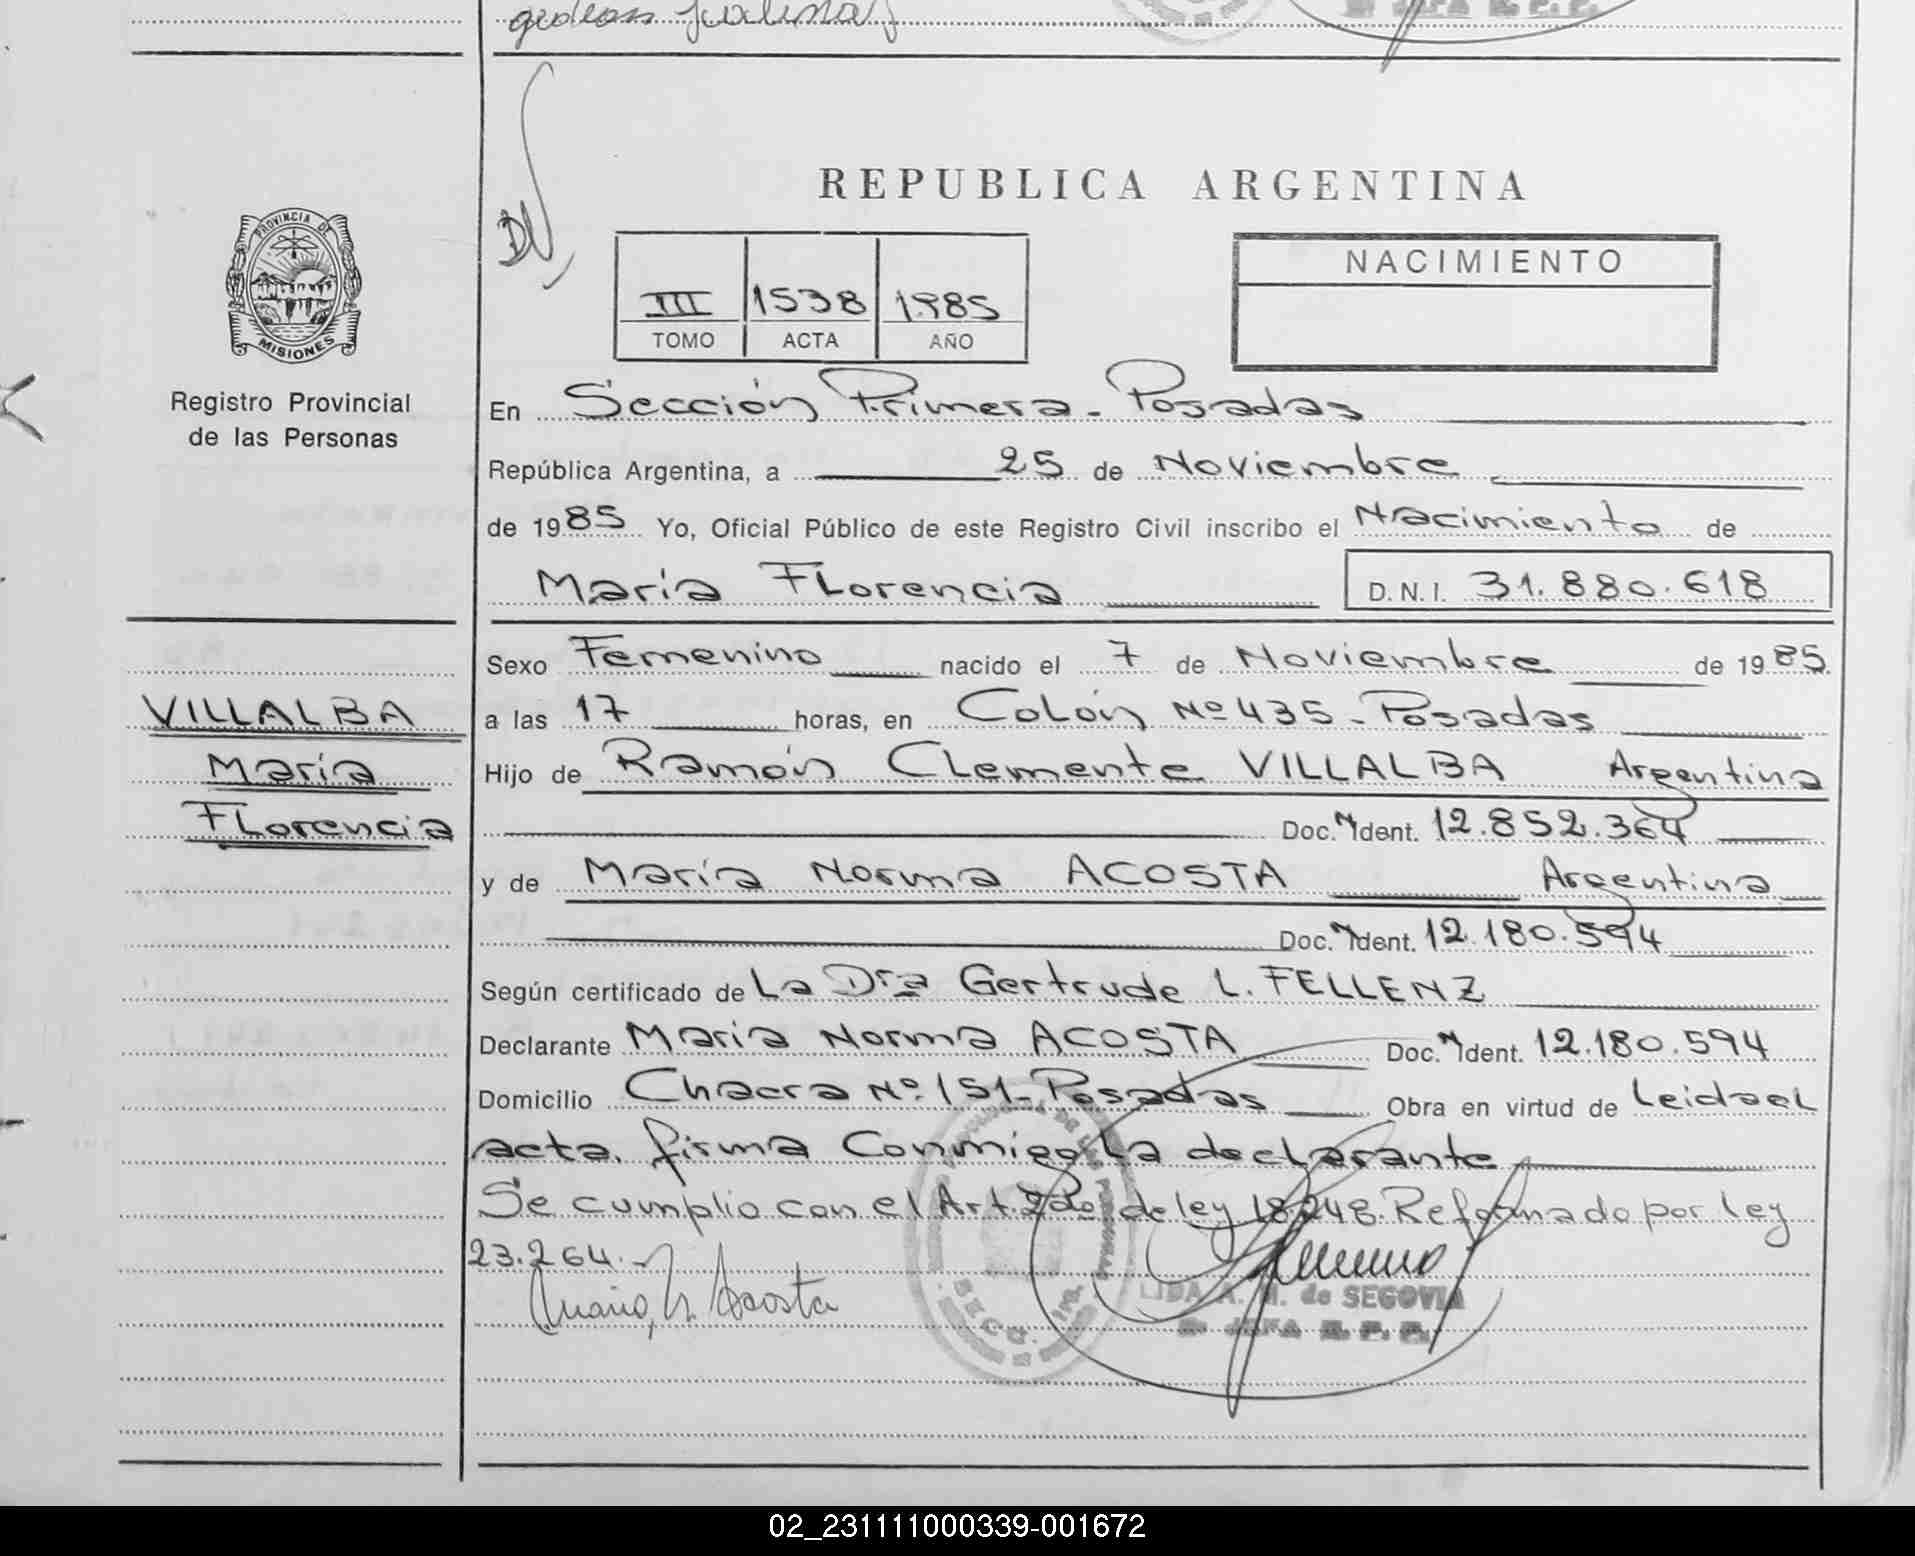 REPUBLICA ARGENTINA
PROVINCIA DE
MISIONES
Registro Provincial
de las Personas
III 1538 1985
TOMO ACTA AÑO
NACIMIENTO
En Sección Primera - Posadas
República Argentina, a 25 de Noviembre
de 1985 Yo, Oficial Público de este Registro Civil inscribo el Nacimiento de
María Florencia D.N.I. 31.880.618
Sexo Femenino nacido el 7 de Noviembre de 1985
VILLALBA
María
Florencia
a las 17 horas, en Colón Nº 435 - Posadas
Hijo de Ramón Clemente VILLALBA Argentina
Doc. Ident. 12.852.364
y de María Norma ACOSTA Argentina
Doc. Ident. 12.180.594
Según certificado de La Dra Gertrude L. FELLENZ
Declarante María Norma ACOSTA Doc. Ident. 12.180.594
Domicilio Chacra Nº 151 - Posadas Obra en virtud de Leida el
acta. firma Conmigo La declarante
Se cumplio con el Art. 2do de ley 18.248. Reformado por ley
23.264.
María N. Acosta
LIDA A. M. de SEGOVIA
SECC. 1ra.
02_231111000339-001672